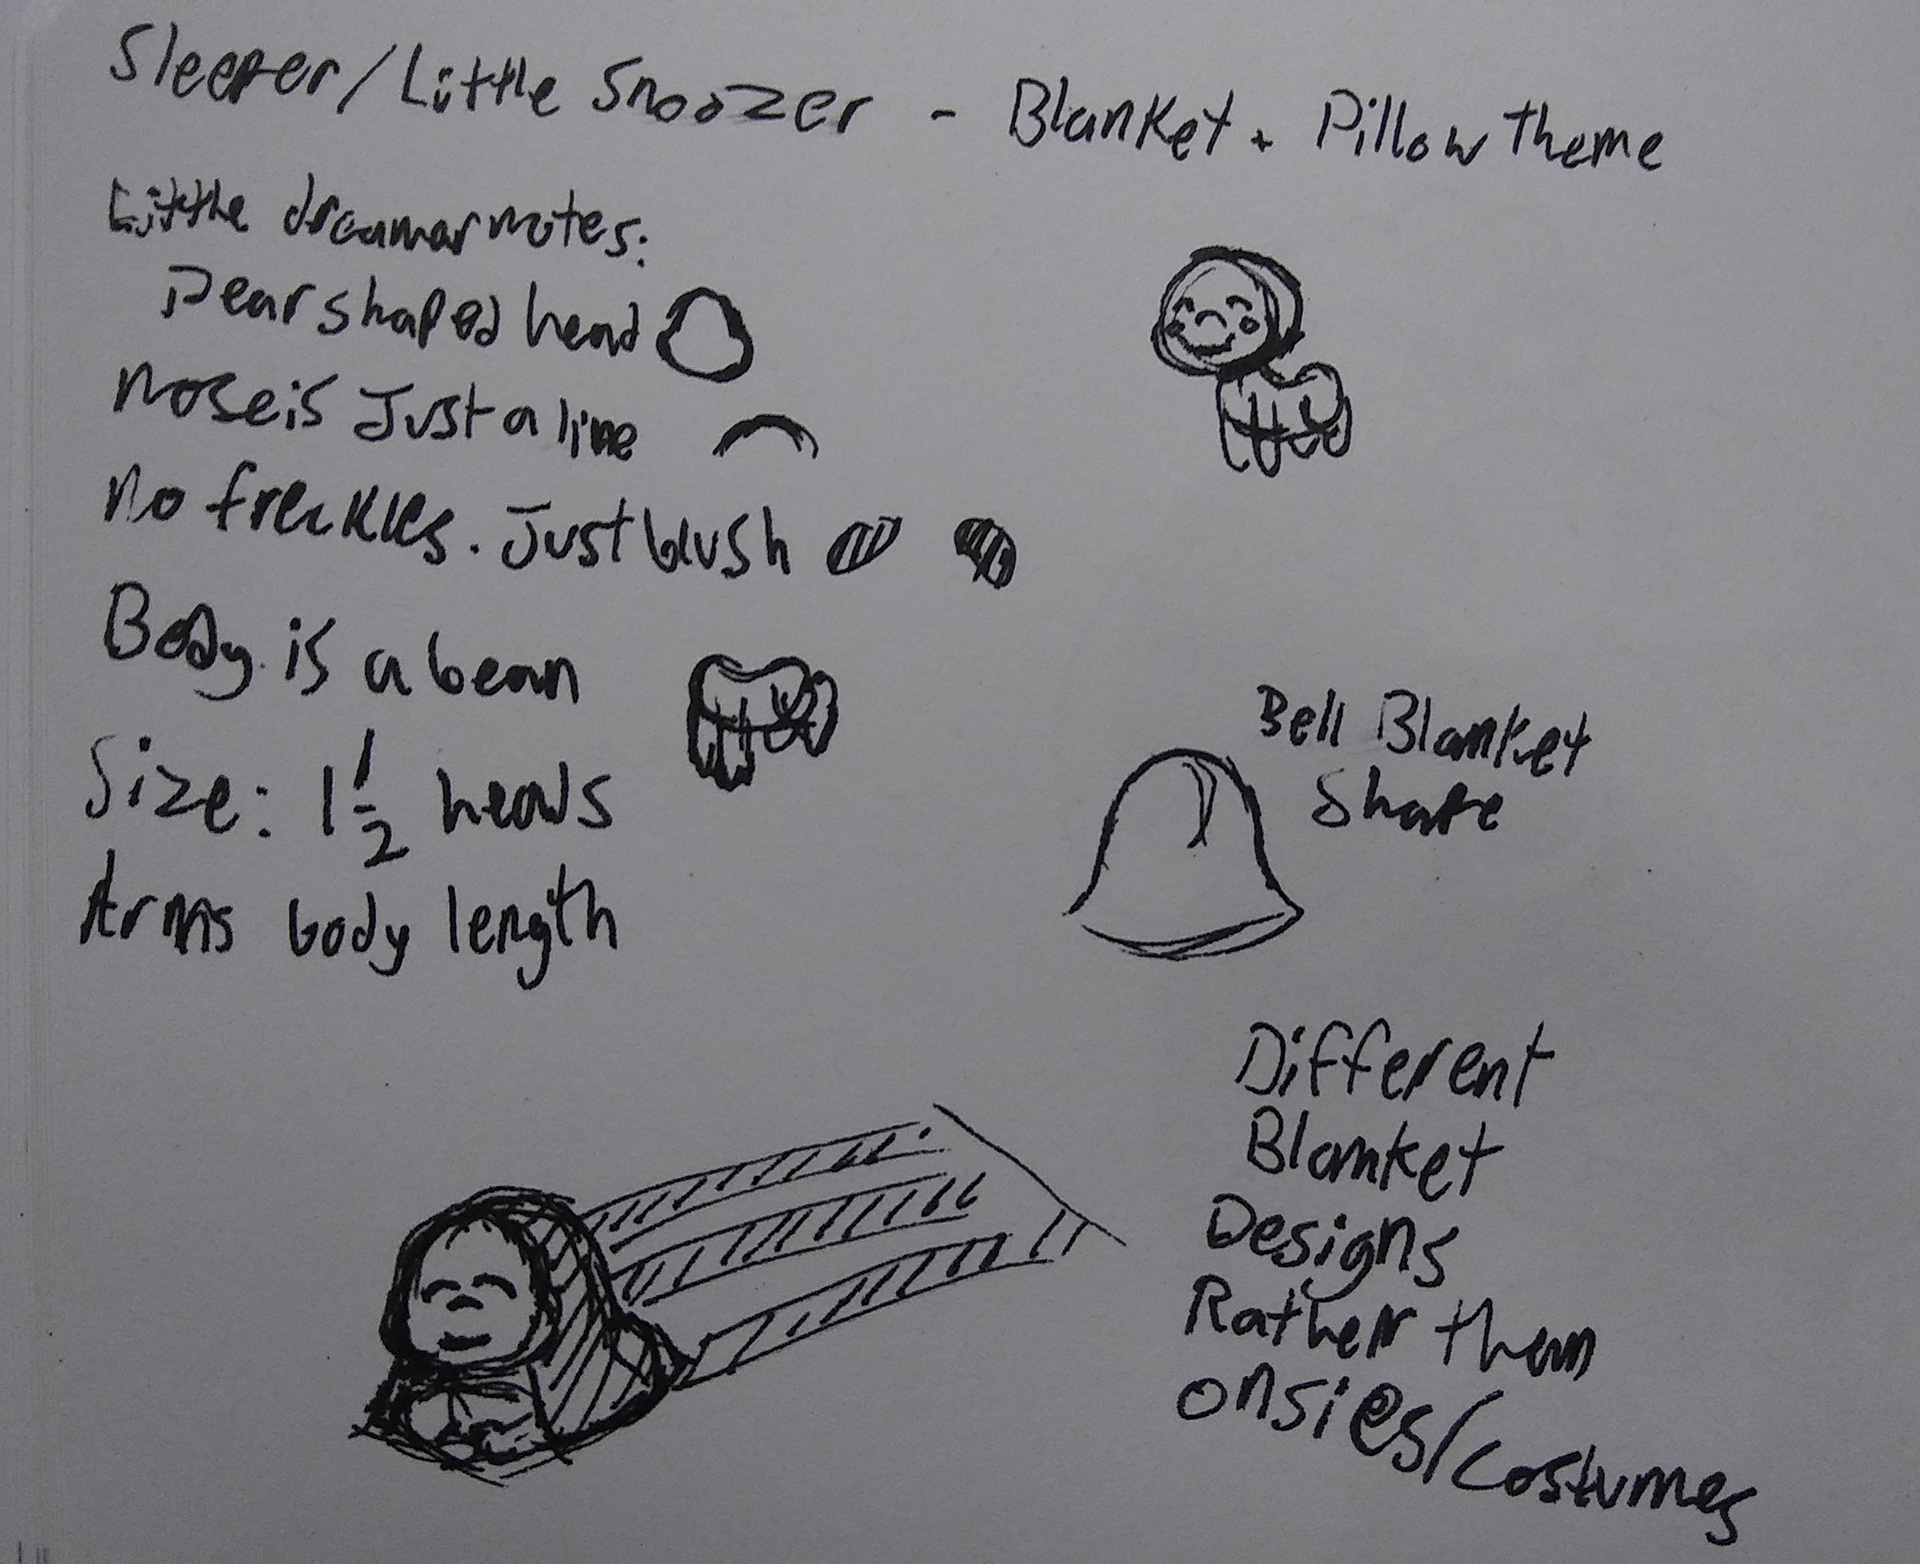 Sleeper/Little Snoozer - Blanket + Pillow theme
Little dreamar notes:
Pear shaped head
Nose is Just a line
No freckles. Just blush
Body is a bean
Size: 1 1/2 heads
Arms body length
Bell Blanket
Shape
Different
Blanket
Designs
Rather than
onsies/costumes